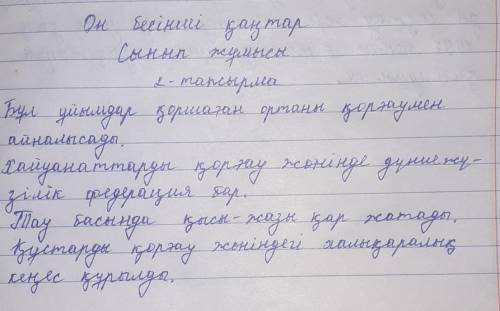 Он бесінші қаңтар
Сынып жұмысы
2-тапсырма
Бұл ұйымдар қоршаған ортаны қорғаумен
айналысады.
Хайуанаттарды қорғау жөнінде дүниежү-
зілік федерация бар.
Тау басында қысы-жазы қар жатады.
Құстарды қорғау жөніндегі халықаралық
кеңес құрылды.